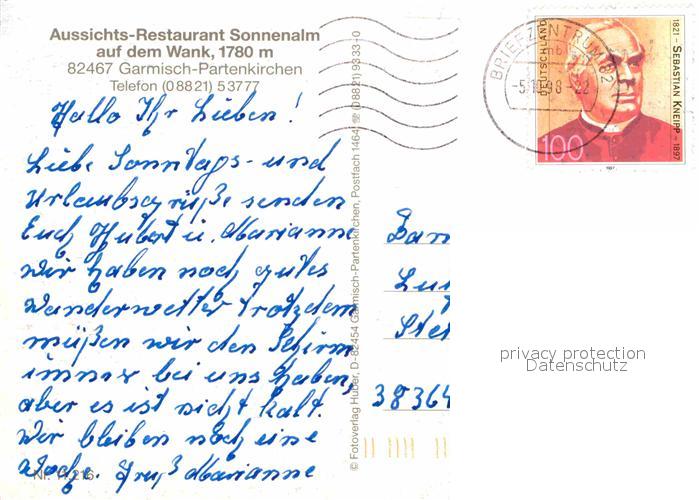 Aussichts-Restaurant Sonnenalm
auf dem Wank, 1780 m
82467 Garmisch-Partenkirchen
Telefon (0 88 21) 5 37 77
Hallo Ihr Lieben!
Liebe Sonntags- und
Urlaubsgrüße senden
Euch Hubert u. Marianne
Wir haben noch gutes
Wanderwetter trotzdem
müßen wir den Schirm
immer bei uns haben,
aber es ist nicht kalt.
Wir bleiben noch eine
Woch. Gruß Marianne
Nr. 11.216
© Fotoverlag Huber, D-82454 Garmisch-Partenkirchen, Postfach 1464, ☏ (0 88 21) 93 33-0
BRIEFZENTRUM 82
-5.10.98-22
DEUTSCHLAND
100
1821 - SEBASTIAN KNEIPP - 1897
38364
privacy protection
Datenschutz